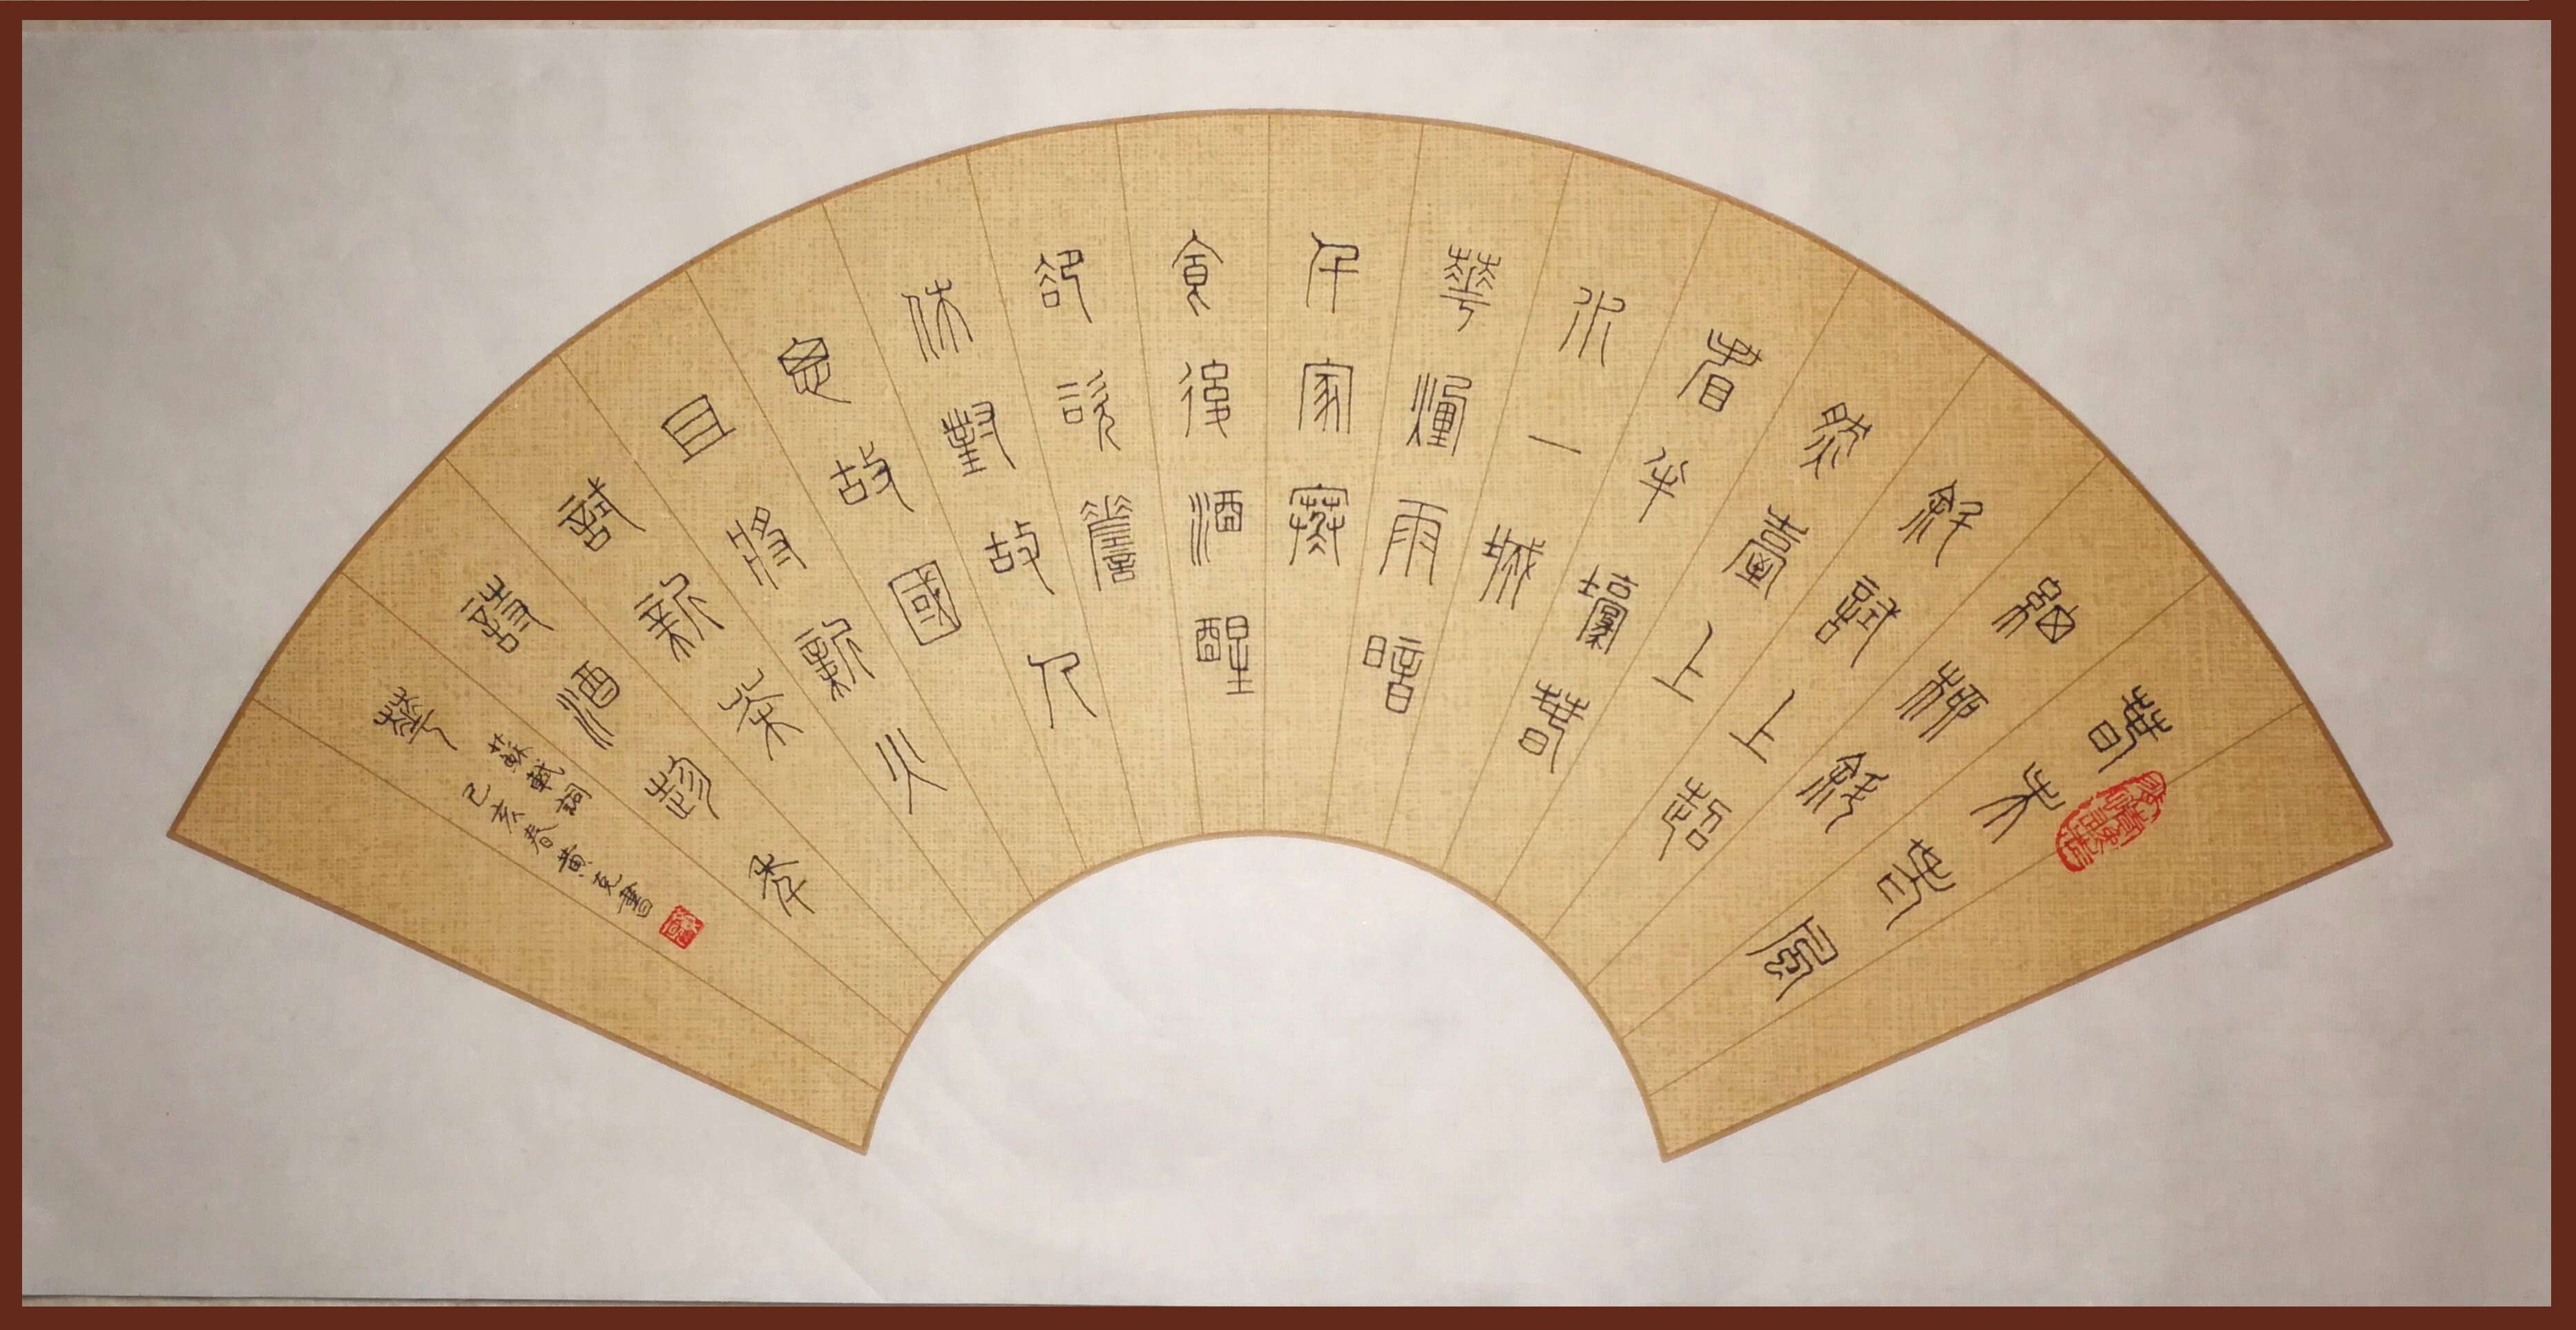 春未老風
細柳斜
斜試上超
然臺上
看半壕春
水一城
華煙雨暗
千家寒
食後酒醒
卻咨嗟
休對故人
思故國
且將新火
試新茶
詩酒趁年
華
蘇軾詞
己亥春黃克書